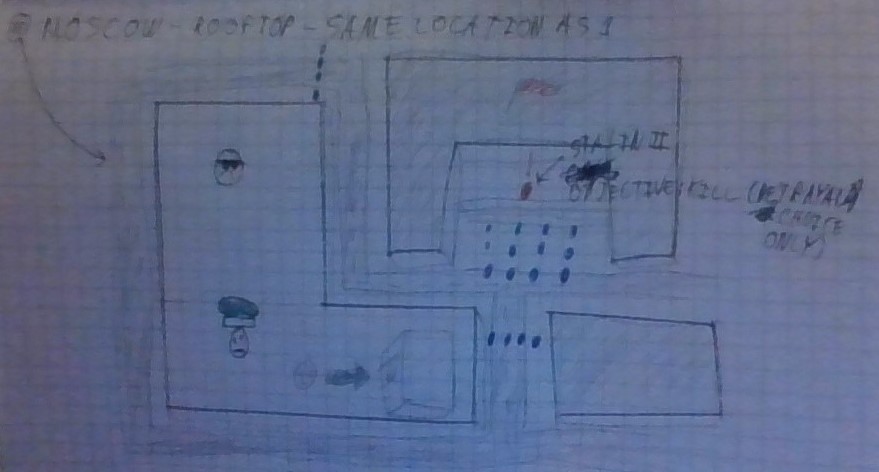 MOSCOW - ROOFTOP - SAME LOCATION AS 1
STALIN II
OBJECTIVE: KILL (BETRAYAL
CHOICE
ONLY)